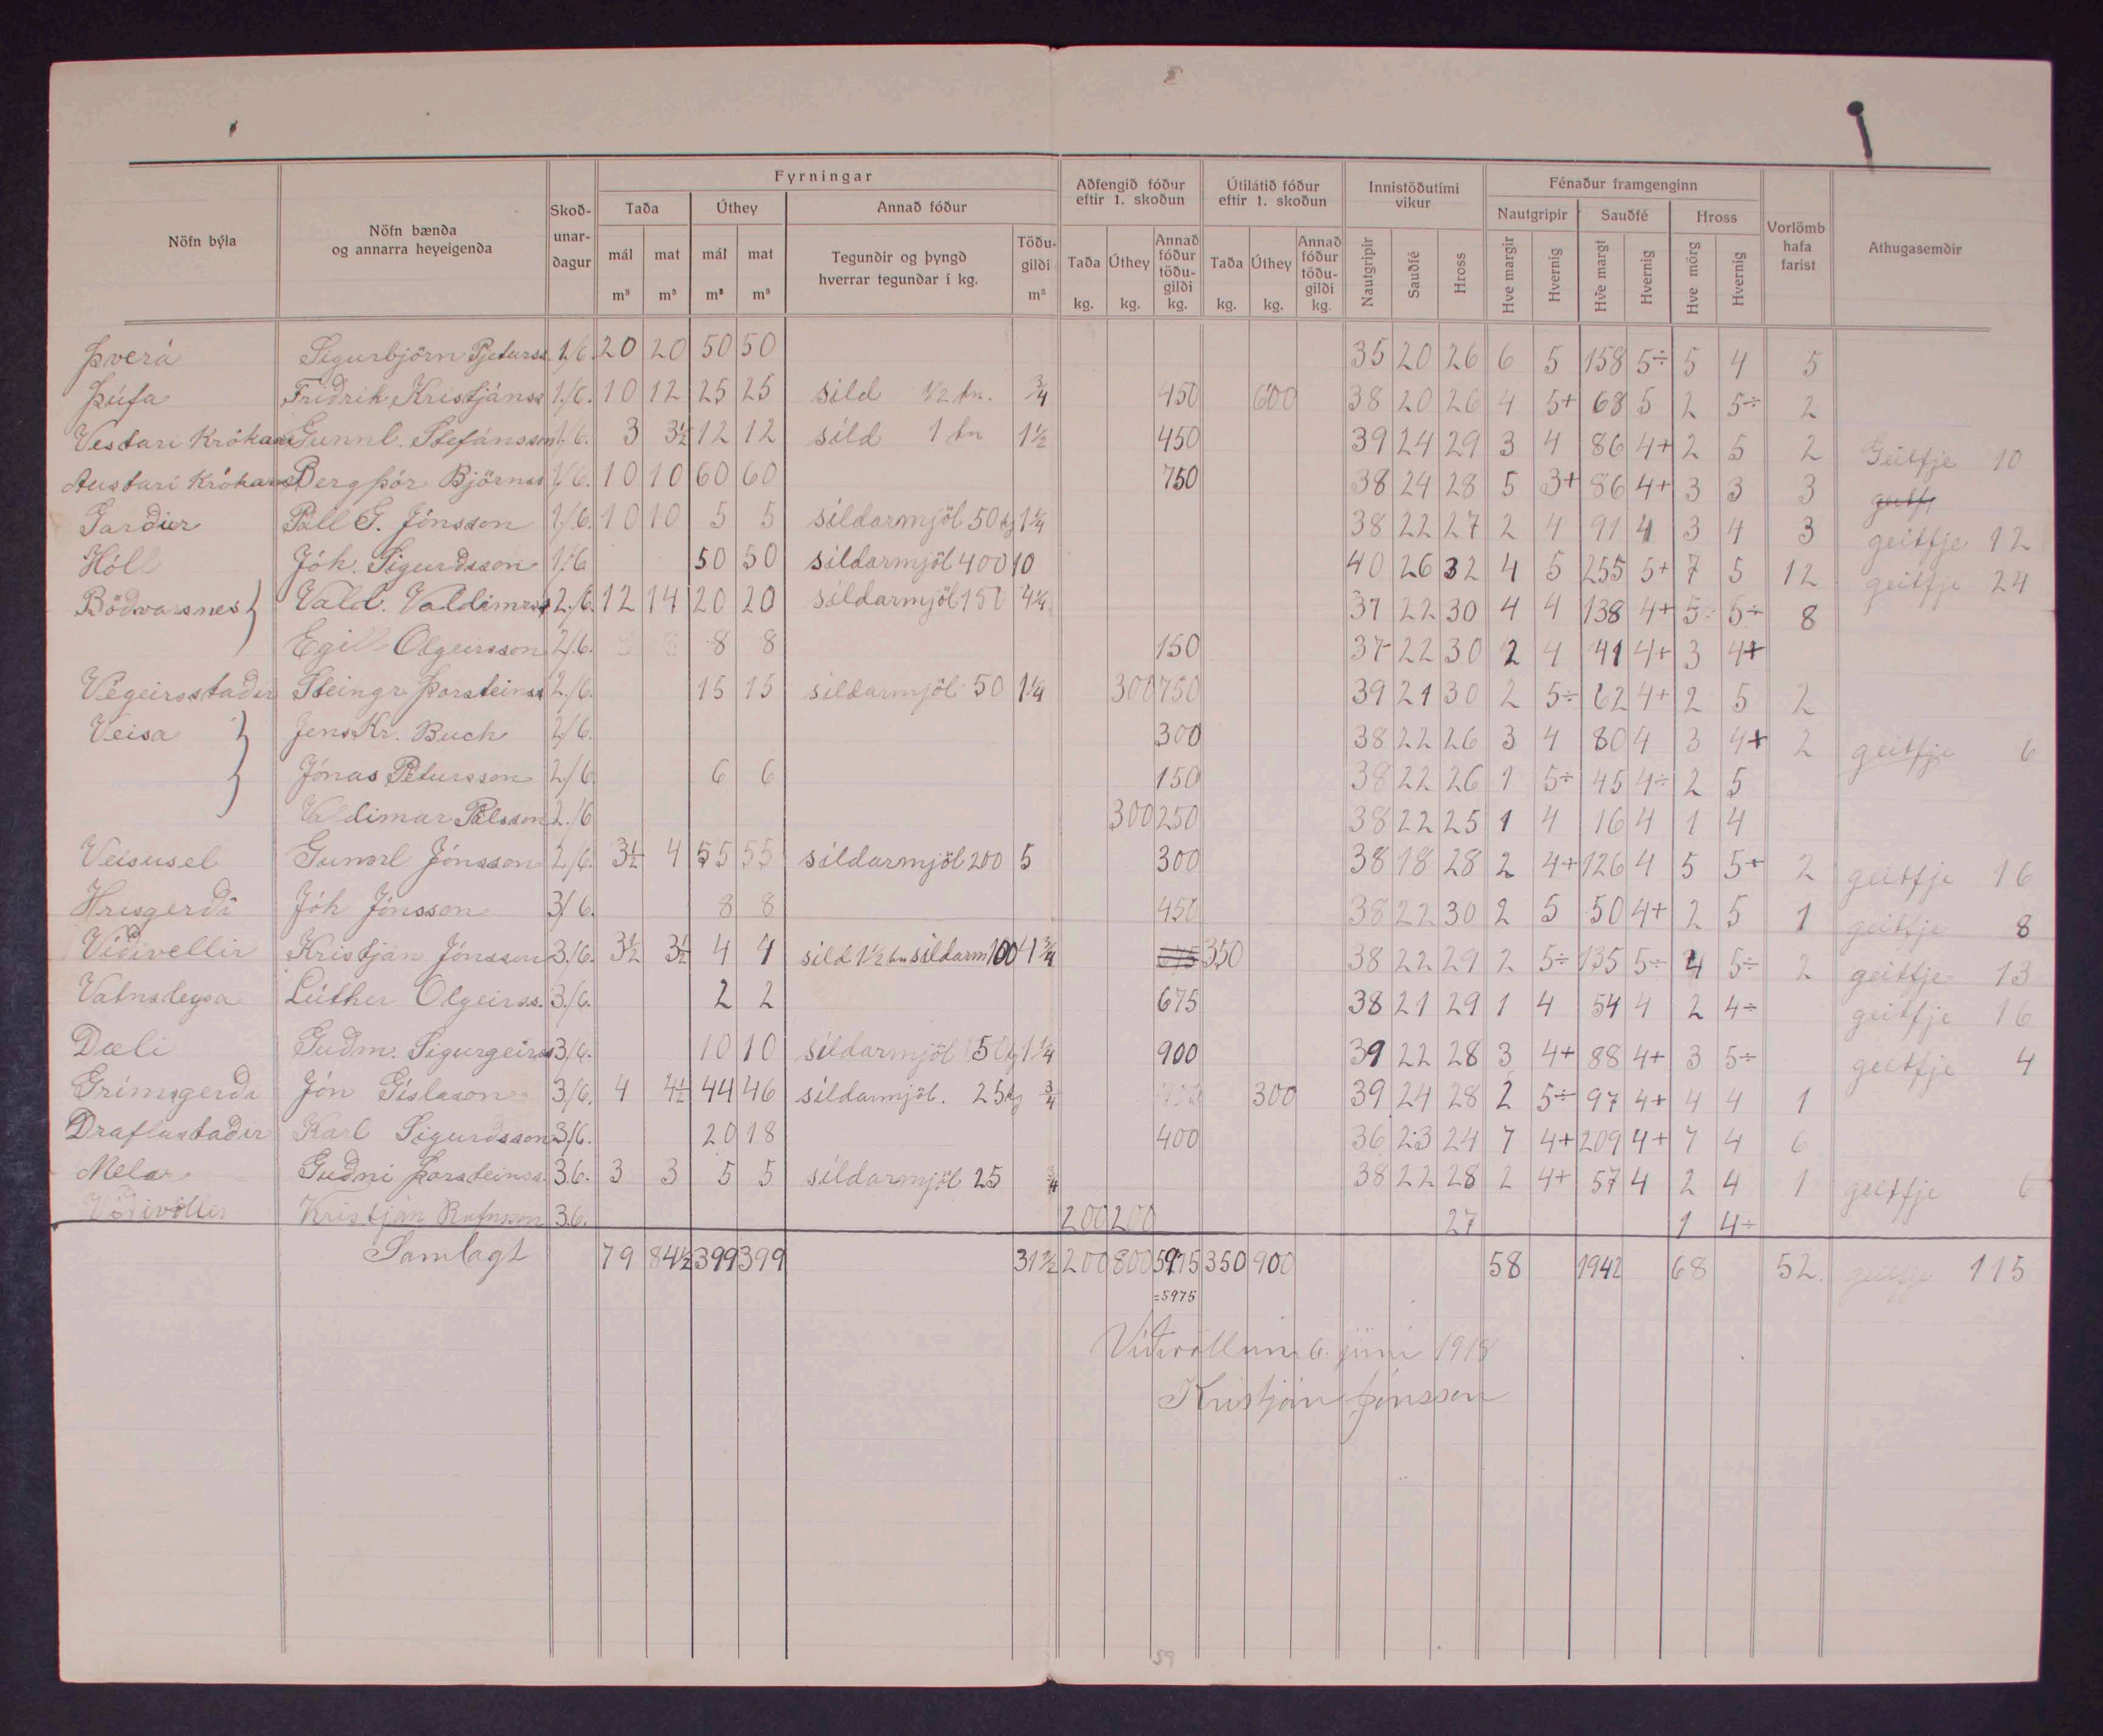 Fyrningar
Aðfengið fóður eftir 1. skoðun
Útilátið fóður eftir 1. skoðun
Innistöðutími vikur
Fénaður framgenginn
Nöfn býla
Nöfn bænda og annarra heyeigenda
Skoð-unar-dagur
Taða
Úthey
Annað fóður
Nautgripir Sauðfé Hross
Vorlömb hafa farist
Athugasemdir
mál m³ mat m³ mál m³ mat m³
Tegundir og þyngd hverrar tegundar í kg.
Töðu-gildi m³
Taða kg. Úthey kg. Annað fóður töðu-gildi kg.
Taða kg. Úthey kg. Annað fóður töðu-gildi kg.
Nautgripir Sauðfé Hross
Hve margir Hvernig Hve margt Hvernig Hve mörg Hvernig
Þverá Sigurbjörn Pjeturss 1/6. 20 20 50 50 35 20 26 6 5 158 5÷ 5 4 5
Þúfa Friðrik Kristjánss 1/6. 10 12 25 25 síld 1/2 tn. 3/4 450 600 38 20 26 4 5+ 68 5 2 5÷ 2
Vestari Krókar Gunnl. Stefánsson 1/6. 3 3½ 12 12 síld 1 tn 1½ 450 39 24 29 3 4 86 4+ 2 5 2 Geitfje 10
Austari Krókar Bergþór Björnss 1/6. 10 10 60 60 750 38 24 28 5 3+ 86 4+ 3 3 3
Garður Páll G. Jónsson 1/6. 10 10 5 5 síldarmjöl 50 kg 1¼ 38 22 27 2 4 91 4 3 4 3 geitfje 12
Hóll Jóh. Sigurðsson 1/6 50 50 síldarmjöl 400 10 40 26 32 4 5 255 5+ 7 5 12 geitfje 24
Böðvarsnes } Vald. Valdimarss 2/6. 12 14 20 20 síldarmjöl 150 4¼ 37 22 30 4 4 138 4+ 5 5÷ 8
Egill Olgeirsson 2/6. 8 8 150 37 22 30 2 4 41 4+ 3 4+
Végeirsstaðir Steingr. Þorsteinss 2/6. 15 15 síldarmjöl 50 1¼ 300 750 39 21 30 2 5÷ 62 4+ 2 5 2
Veisa } Jens Kr. Buch 2/6. 300 38 22 26 3 4 80 4 3 4+ 2 geitfje 6
Jónas Pétursson 2/6 6 6 150 38 22 26 1 5÷ 45 4÷ 2 5
Valdimar Pálsson 2/6 300 250 38 22 25 1 4 16 4 1 4
Veisusel Gunnl Jónsson 2/6. 3½ 4 55 55 síldarmjöl 200 5 300 38 18 28 2 4+ 126 4 5 5+ 2 geitfje 16
Hrisgerði Jóh Jónsson 3/6. 8 8 450 38 22 30 2 5 50 4+ 2 5 1 geitfje 8
Víðivellir Kristján Jónsson 3/6. 3½ 3½ 4 4 síld 1½ tn síldarm 100 4¾ 675 350 38 22 29 2 5÷ 135 5÷ 4 5÷ 2 geitfje 13
Vatnsleysa Lúther Olgeirss. 3/6. 2 2 675 38 21 29 1 4 54 4 2 4÷ geitfje 16
Dæli Guðm. Sigurgeirss 3/6. 10 10 síldarmjöl 50 kg 1¼ 900 39 22 28 3 4+ 88 4+ 3 5÷ geitfje 4
Grímsgerði Jón Gíslason 3/6. 4 4½ 44 46 síldarmjöl. 25 kg 3/4 300 39 24 28 2 5÷ 97 4+ 4 4 1
Draflastaðir Karl Sigurðsson 3/6. 20 18 400 36 23 24 7 4+ 209 4+ 7 4 6
Melar Guðni Þorsteinss. 3.6. 3 3 5 5 síldarmjöl 25 3/4 38 22 28 2 4+ 57 4 2 4 1 geitfje 6
Kristján Rafnsson 3.6. 200 200 27 1 4÷
Samlagt 79 84½ 399 399 31½ 200 800 5975 350 900 58 1942 68 52 geitfje 115
=5975
Víðivöllum 6. júní 1918
Kristján Jónsson
59